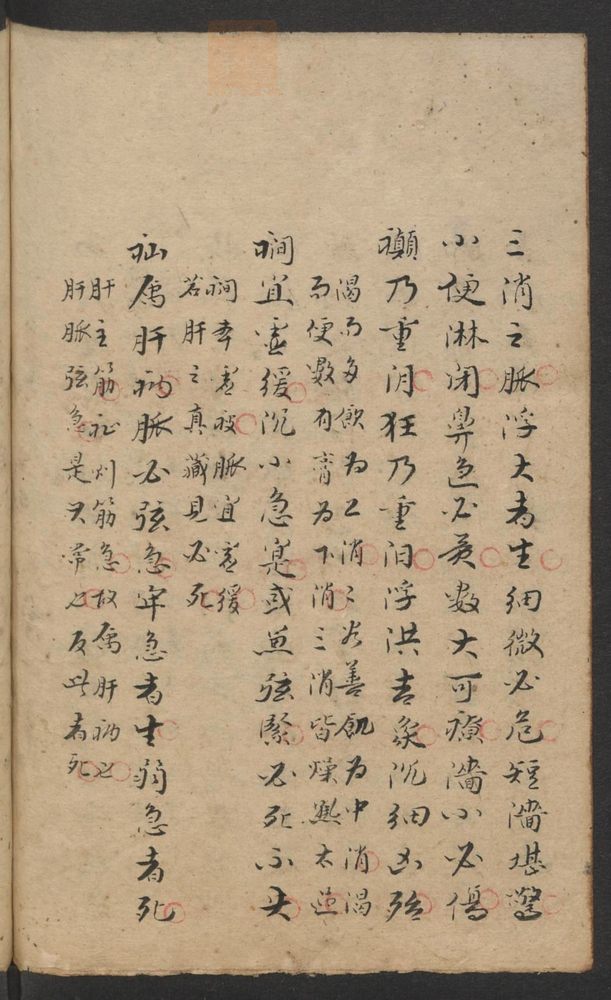 三消之脈浮大者生細微必危短濇堪驚
小便淋闭鼻色必黄數大可療濇小必傷
癲乃重阴狂乃重阳浮洪吉象沉細凶殃
渴而多飲为上消消谷善飢为中消渴
而便數有膏为下消三消皆燥熱太過
癇宜虛缓沉小急實或兼弦緊必死不失
癇本虛痰脈宜虛缓
若肝之真藏見必死
疝属肝病脈必弦急牢急者生弱急者死
肝主筋疝则筋急故属肝病也
肝脈弦急是其常也反此者死